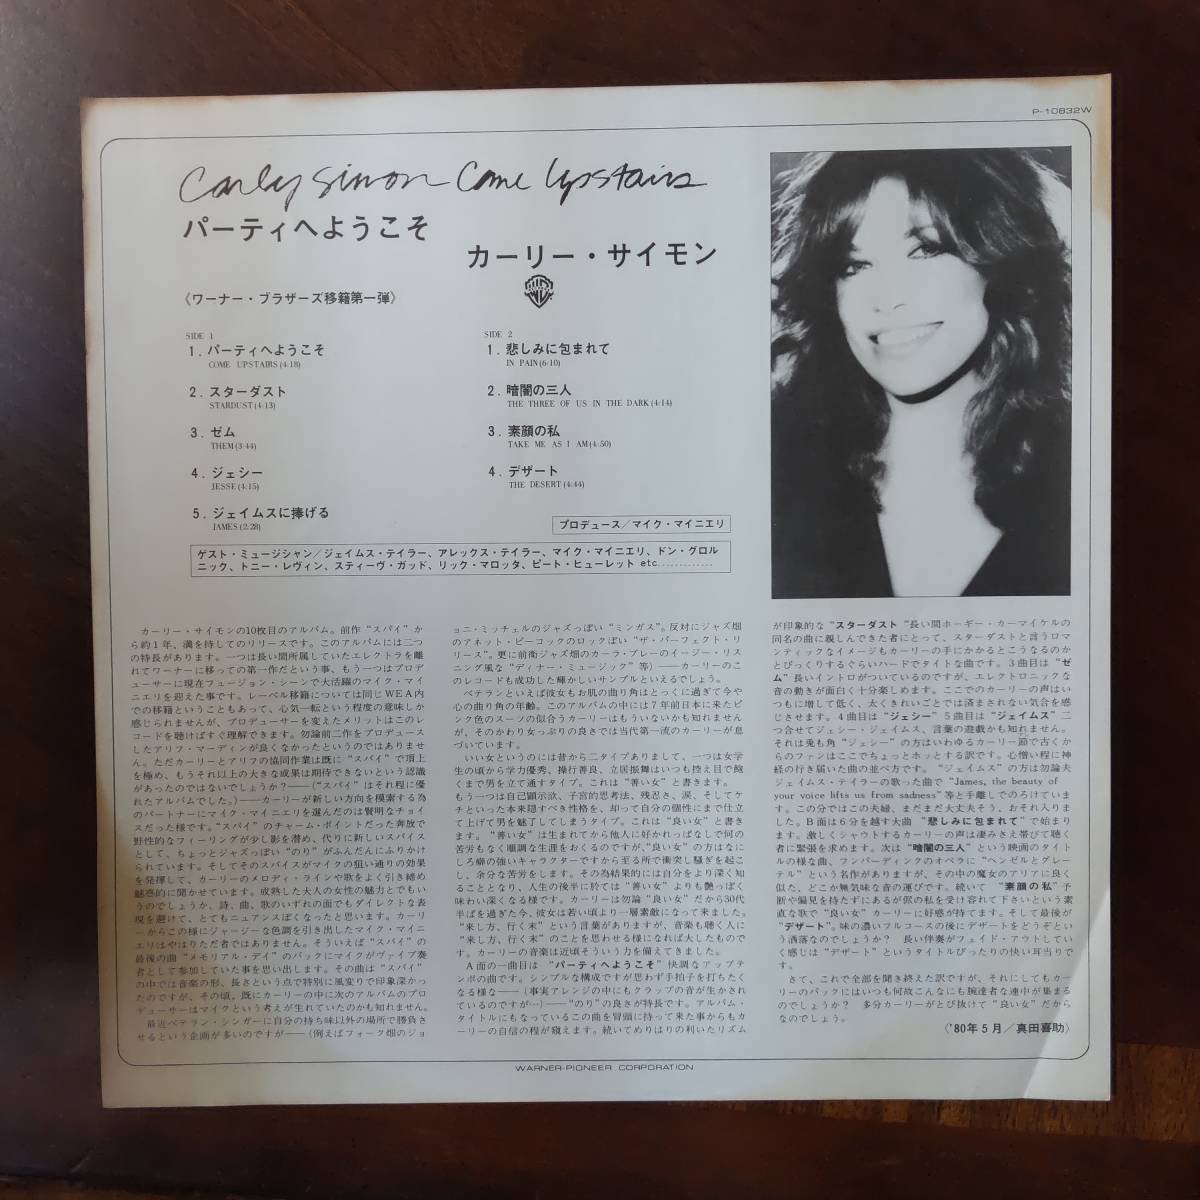 P-10832W
Carly Simon Come Upstairs
パーティへようこそ
カーリー・サイモン
《ワーナー・ブラザーズ移籍第一弾》
SIDE 1
1. パーティへようこそ
COME UPSTAIRS (4:18)
2. スターダスト
STARDUST (4:13)
3. ゼム
THEM (3:44)
4. ジェシー
JESSE (4:15)
5. ジェイムスに捧げる
JAMES (2:28)
SIDE 2
1. 悲しみに包まれて
IN PAIN (6:10)
2. 暗闇の三人
THE THREE OF US IN THE DARK (4:14)
3. 素顔の私
TAKE ME AS I AM (4:50)
4. デザート
THE DESERT (4:44)
プロデュース/マイク・マイニエリ
ゲスト・ミュージシャン/ジェイムス・テイラー、アレックス・テイラー、マイク・マイニエリ、ドン・グロル
ニック、トニー・レヴィン、スティーヴ・ガッド、リック・マロッタ、ピート・ヒューレット etc.............
カーリー・サイモンの10枚目のアルバム。前作“スパイ”か
ら約1年、満を持してのリリースです。このアルバムには三つ
の特長があります。一つは長い間所属していたエレクトラを離
れてワーナーに移っての第一作だという事、もう一つはプロデ
ューサーに現在フュージョン・シーンで大活躍のマイク・マイ
ニエリを迎えた事です。レーベル移籍については同じWEA内
での移籍ということもあって、心気一転という程度の意味しか
感じられませんが、プロデューサーを変えたメリットはこのレ
コードを聴けばすぐ理解できます。勿論前二作をプロデュース
したアリフ・マーディンが良くなかったというのではありませ
ん。ただカーリーとアリフの協同作業は既に“スパイ”で頂上
を極め、もうそれ以上の大きな成果は期待できないという認識
があったのではないでしょうか?――(“スパイ”はそれ程に優
れたアルバムでした。)――カーリーが新しい方向を模索する為
のパートナーにマイク・マイニエリを選んだのは賢明なチョイ
スだった様です。“スパイ”のチャーム・ポイントだった奔放で
野性的なフィーリングが少し影を潜め、代りに新しいスパイス
として、ちょっとジャズっぽい“のり”がふんだんにふりかけ
られています。そしてそのスパイスがマイクの狙い通りの効果
を発揮して、カーリーのメロディ・ラインや歌をよく引き締め
魅惑的に聞かせています。成熟した大人の女性の魅力とでもい
うのでしょうか、詩、曲、歌のいずれの面でもダイレクトな表
現を避けて、とてもニュアンスぽくなったと思います。カーリ
ーからこの様にジャージーな色調を引き出したマイク・マイニ
エリはやはりただ者ではありません。そういえば“スパイ”の
最後の曲“メモリアル・デイ”のバックにマイクがヴァイブ奏
者として参加していた事を思い出します。その曲は“スパイ”
の中では音楽の形、長さという点で特別に風変りで印象深かっ
たのですが、その頃、既にカーリーの中に次のアルバムのプロ
デューサーはマイクという考えが生れていたのかも知れません。
最近ベテラン・シンガーに自分の持ち味以外の場所で勝負さ
せるという企画が多いのですが――(例えばフォーク畑のジョ
ョニ・ミッチェルのジャズっぽい“ミンガス”。反対にジャズ畑
のアネット・ピーコックのロックぽい“ザ・パーフェクト・リ
リース”。更に前衛ジャズ畑のカーラ・ブレーのイージー・リス
ニング風な“ディナー・ミュージック”等)――カーリーのこ
のレコードも成功した輝かしいサンプルといえるでしょう。
ベテランといえば彼女もお肌の曲り角はとっくに過ぎて今や
心の曲り角の年齢。このアルバムの中には7年前日本に来たピ
ンク色のスーツの似合うカーリーはもういないかも知れません
が、そのかわり女っぷりの良さでは当代第一流のカーリーが息
づいています。
いい女というのには昔から二タイプありまして、一つは女学
生の頃から学力優秀、操行善良、立居振舞はいつも控え目で飽
くまで男を立て通すタイプ。これは“善い女”と書きます。
もう一つは自己顕示欲、子宮的思考法、残忍さ、涙、そしてケ
チといった本来隠すべき性格を、却って自分の個性にまで仕立
て上げて男を魅了してしまうタイプ。これは“良い女”と書き
ます。“善い女”は生まれてから他人に好かれっぱなしで何の
苦労もなく順調な生涯をおくるのですが、“良い女”の方はなに
しろ癖の強いキャラクターですから至る所で衝突し騒ぎを起こ
し、余分な苦労をします。その為結果的には自分をより深く知
ることとなり、人生の後半に於ては“善い女”よりも艶っぽく
味わい深くなる様です。カーリーは勿論“良い女”だから30代
半ばを過ぎた今、彼女は若い頃より一層素敵になって来ました。
“来し方、行く末”という言葉がありますが、音楽も聴く人に
“来し方、行く末”のことを思わせる様になれば大したもので
す。カーリーの音楽は近頃そういう力を備えてきました。
A面の一曲目は“パーティへようこそ”快調なアップテ
ンポの曲です。シンプルな構成ですが思わず手拍子を打ちたく
なる様な――(事実アレンジの中にもクラップの音が生かされ
ているのですが…)――“のり”の良さが特長です。アルバム・
タイトルにもなっているこの曲を冒頭に持って来た事からもカ
ーリーの自信の程が窺えます。続いてめりはりの利いたリズム
が印象的な“スターダスト”長い間ホーギー・カーマイケルの
同名の曲に親しんできた者にとって、スターダストと言うロマ
ンティックなイメージもカーリーの手にかかるとこうなるのか
とびっくりするぐらいハードでタイトな曲です。3曲目は“ゼ
ム”長いイントロがついているのですが、エレクトロニックな
音の動きが面白く十分楽しめます。ここでのカーリーの声はい
つもに増して低く、太くきれいごとでは済まされない気合を感
じさせます。4曲目は“ジェシー”5曲目は“ジェイムス”二
つ合せてジェシー・ジェイムス、言葉の遊戯かも知れません。
それは兎も角“ジェシー”の方はいわゆるカーリー節で古くか
らのファンはここでちょっとホッとする訳です。心憎い程に神
経の行き届いた曲の並べ方です。“ジェイムス”の方は勿論夫
ジェイムス・テイラーの歌った曲で“James, the beauty of
your voice lifts us from sadness”等と手離しでのろけています
。この分ではこの夫婦、まだまだ大丈夫そう、おそれ入りま
した。B面は6分を越す大曲“悲しみに包まれて”で始まり
ます。激しくシャウトするカーリーの声は凄みさえ帯びて聴く
者に緊張を求めます。次は“暗闇の三人”という映画のタイト
ルの様な曲、フンパーディンクのオペラに“ヘンゼルとグレー
テル”という名作がありますが、その中の魔女のアリアに良く
似た、どこか無気味な音の運びです。続いて“素顔の私”予
断や偏見を持たずにあるが侭の私を受け容れて下さいという素
直な歌で“良い女”カーリーに好感が持てます。そして最後が
“デザート”。味の濃いフルコースの後にデザートをどうぞとい
う洒落なのでしょうか? 長い伴奏がフェイド・アウトしてい
く感じは“デザート”というタイトルぴったりの快い耳当りで
す。
さて、これで全部を聞き終えた訳ですが、それにしてもカー
リーのバックにはいつも何故こんなにも腕達者な連中が集まる
のでしょうか? 多分カーリーがとび抜けて“良い女”だから
なのでしょう。
('80年5月/真田喜助)
WARNER-PIONEER CORPORATION